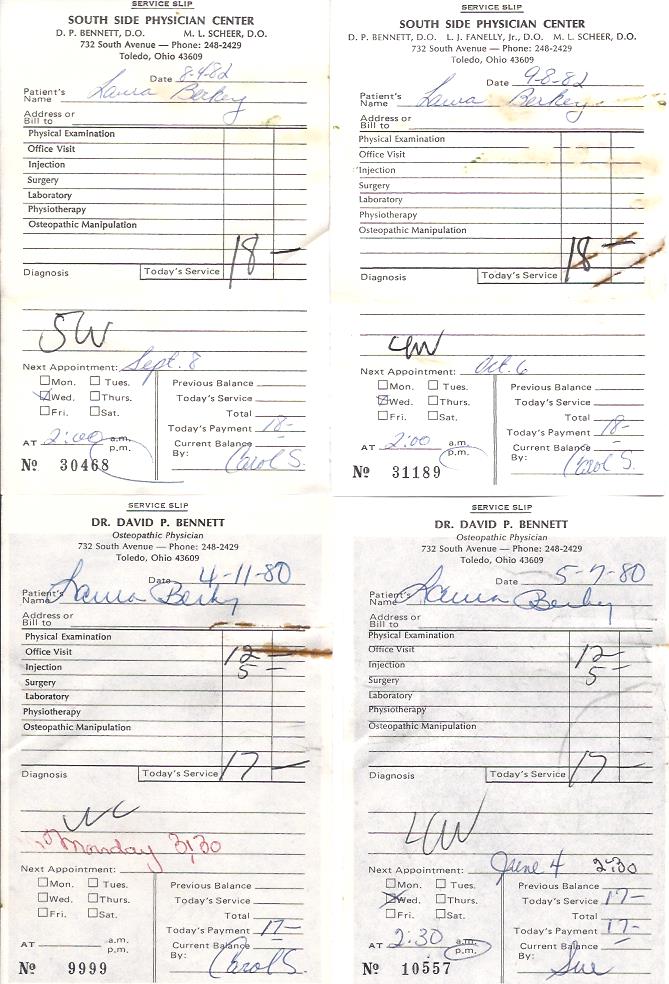 SERVICE SLIP
SOUTH SIDE PHYSICIAN CENTER
D. P. BENNETT, D.O. M. L. SCHEER, D.O.
732 South Avenue — Phone: 248-2429
Toledo, Ohio 43609
Date 8-4-82
Patient's
Name Laura Berkey
Address or
Bill to
Physical Examination
Office Visit
Injection
Surgery
Laboratory
Physiotherapy
Osteopathic Manipulation
18 —
Diagnosis Today's Service
5W
Next Appointment: Sept. 8
Mon. Tues.
Wed. Thurs.
Fri. Sat.
AT 2:00 a.m.
p.m.
Previous Balance
Today's Service
Total
Today's Payment 18-
Current Balance
By: Carol S.
No 30468
SERVICE SLIP
SOUTH SIDE PHYSICIAN CENTER
D. P. BENNETT, D.O. L. J. FANELLY, Jr., D.O. M. L. SCHEER, D.O.
732 South Avenue — Phone: 248-2429
Toledo, Ohio 43609
Date 9-8-82
Patient's
Name Laura Berkey
Address or
Bill to
Physical Examination
Office Visit
Injection
Surgery
Laboratory
Physiotherapy
Osteopathic Manipulation
18 —
Diagnosis Today's Service
4W
Next Appointment: Oct. 6
Mon. Tues.
Wed. Thurs.
Fri. Sat.
AT 2:00 a.m.
p.m.
Previous Balance
Today's Service
Total
Today's Payment 18-
Current Balance
By: Carol S.
No 31189
SERVICE SLIP
DR. DAVID P. BENNETT
Osteopathic Physician
732 South Avenue — Phone: 248-2429
Toledo, Ohio 43609
Date 4-11-80
Patient's
Name Laura Berkey
Address or
Bill to
Physical Examination
Office Visit 12 —
Injection 5 —
Surgery
Laboratory
Physiotherapy
Osteopathic Manipulation
Diagnosis Today's Service 17 —
WC
Monday 3:30
Next Appointment:
Mon. Tues.
Wed. Thurs.
Fri. Sat.
AT a.m.
p.m.
Previous Balance
Today's Service
Total
Today's Payment 17-
Current Balance
By: Carol S.
No 9999
SERVICE SLIP
DR. DAVID P. BENNETT
Osteopathic Physician
732 South Avenue — Phone: 248-2429
Toledo, Ohio 43609
Date 5-7-80
Patient's
Name Laura Berkey
Address or
Bill to
Physical Examination
Office Visit 12 —
Injection 5 —
Surgery
Laboratory
Physiotherapy
Osteopathic Manipulation
Diagnosis Today's Service 17 —
4W
Next Appointment: June 4 2:30
Mon. Tues.
Wed. Thurs.
Fri. Sat.
AT 2:30 a.m.
p.m.
Previous Balance
Today's Service 17-
Total
Today's Payment 17-
Current Balance
By: Sue
No 10557